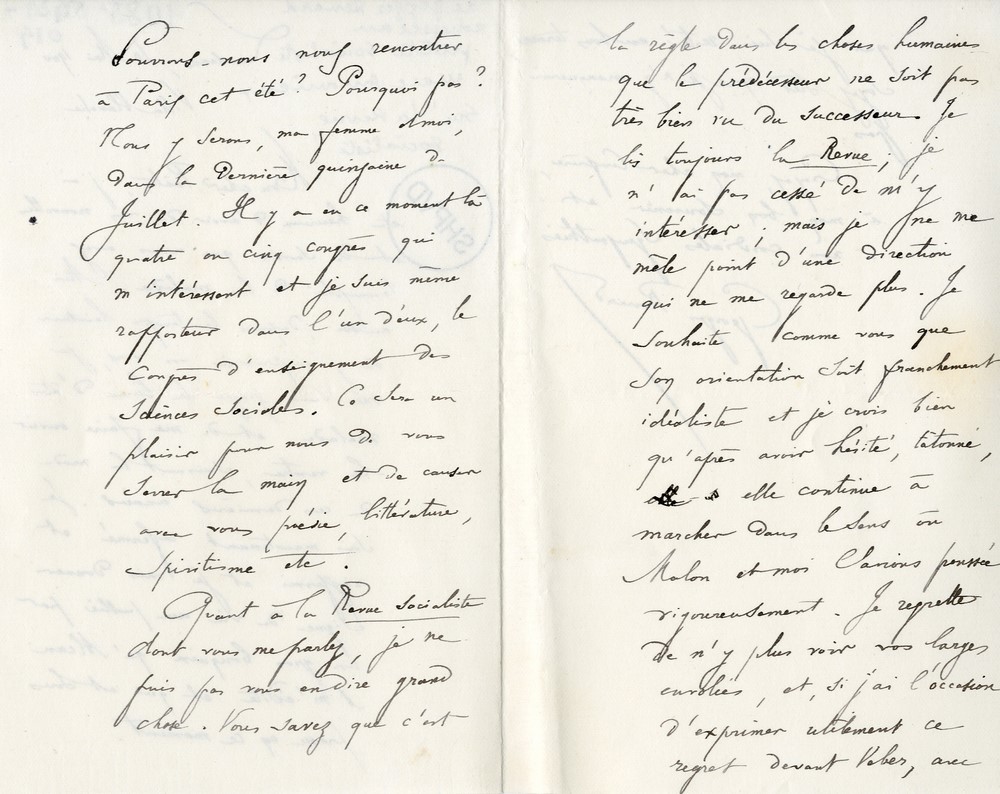 Pourrons-nous nous rencontrer
à Paris cet été ? Pourquoi pas ?
Nous y serons, ma femme et moi,
dans la dernière quinzaine de
Juillet. Il y a en ce moment là
quatre ou cinq congrès qui
m'intéressent et je suis même
rapporteur dans l'un d'eux, le
Congrès d'enseignement des
Sciences Sociales. Ce sera un
plaisir pour nous de vous
serrer la main et de causer
avec vous poésie, littérature,
Spiritisme etc.
Quant à la Revue Socialiste
dont vous me parlez, je ne
puis pas vous en dire grand
chose. Vous savez que c'est
la règle dans les choses humaines
que le prédécesseur ne soit pas
très bien vu du successeur. Je
lis toujours la Revue ; je
n'ai pas cessé de m'y
intéresser ; mais je ne me
mêle point d'une direction
qui ne me regarde plus. Je
souhaite comme vous que
son orientation soit franchement
idéaliste et je crois bien
qu'après avoir hésité, tâtonné,
elle continue à
marcher dans le sens où
Malon et moi l'avions pensée
vigoureusement. Je regrette
de n'y plus voir vos larges
envolées, et, si j'ai l'occasion
d'exprimer utilement ce
regret devant Veber, avec
SHPRD